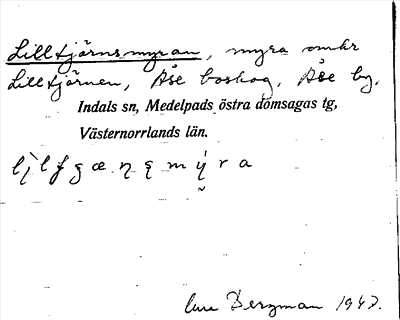 Lilltjärnsmyran, myra omkr
Lilltjärnen, Åse boskog, Åse by.
Indals sn, Medelpads östra domsagas tg,
Västernorrlands län.
Bergman 1947.